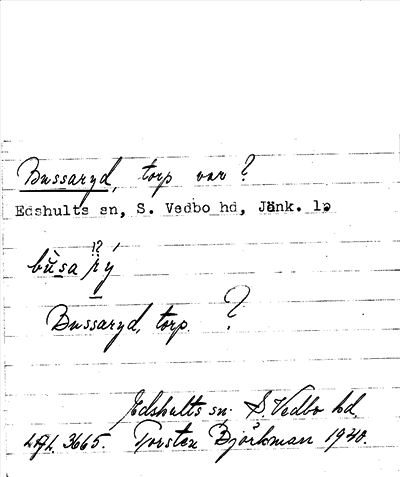 Bussaryd, torp var?
Edshults sn, S. Vedbo hd, Jönk. l.
bu̇sa rý
Bussaryd, torp. ?
Edshults sn. S. Vedbo hd.
3665. Torsten Björkman 1940.